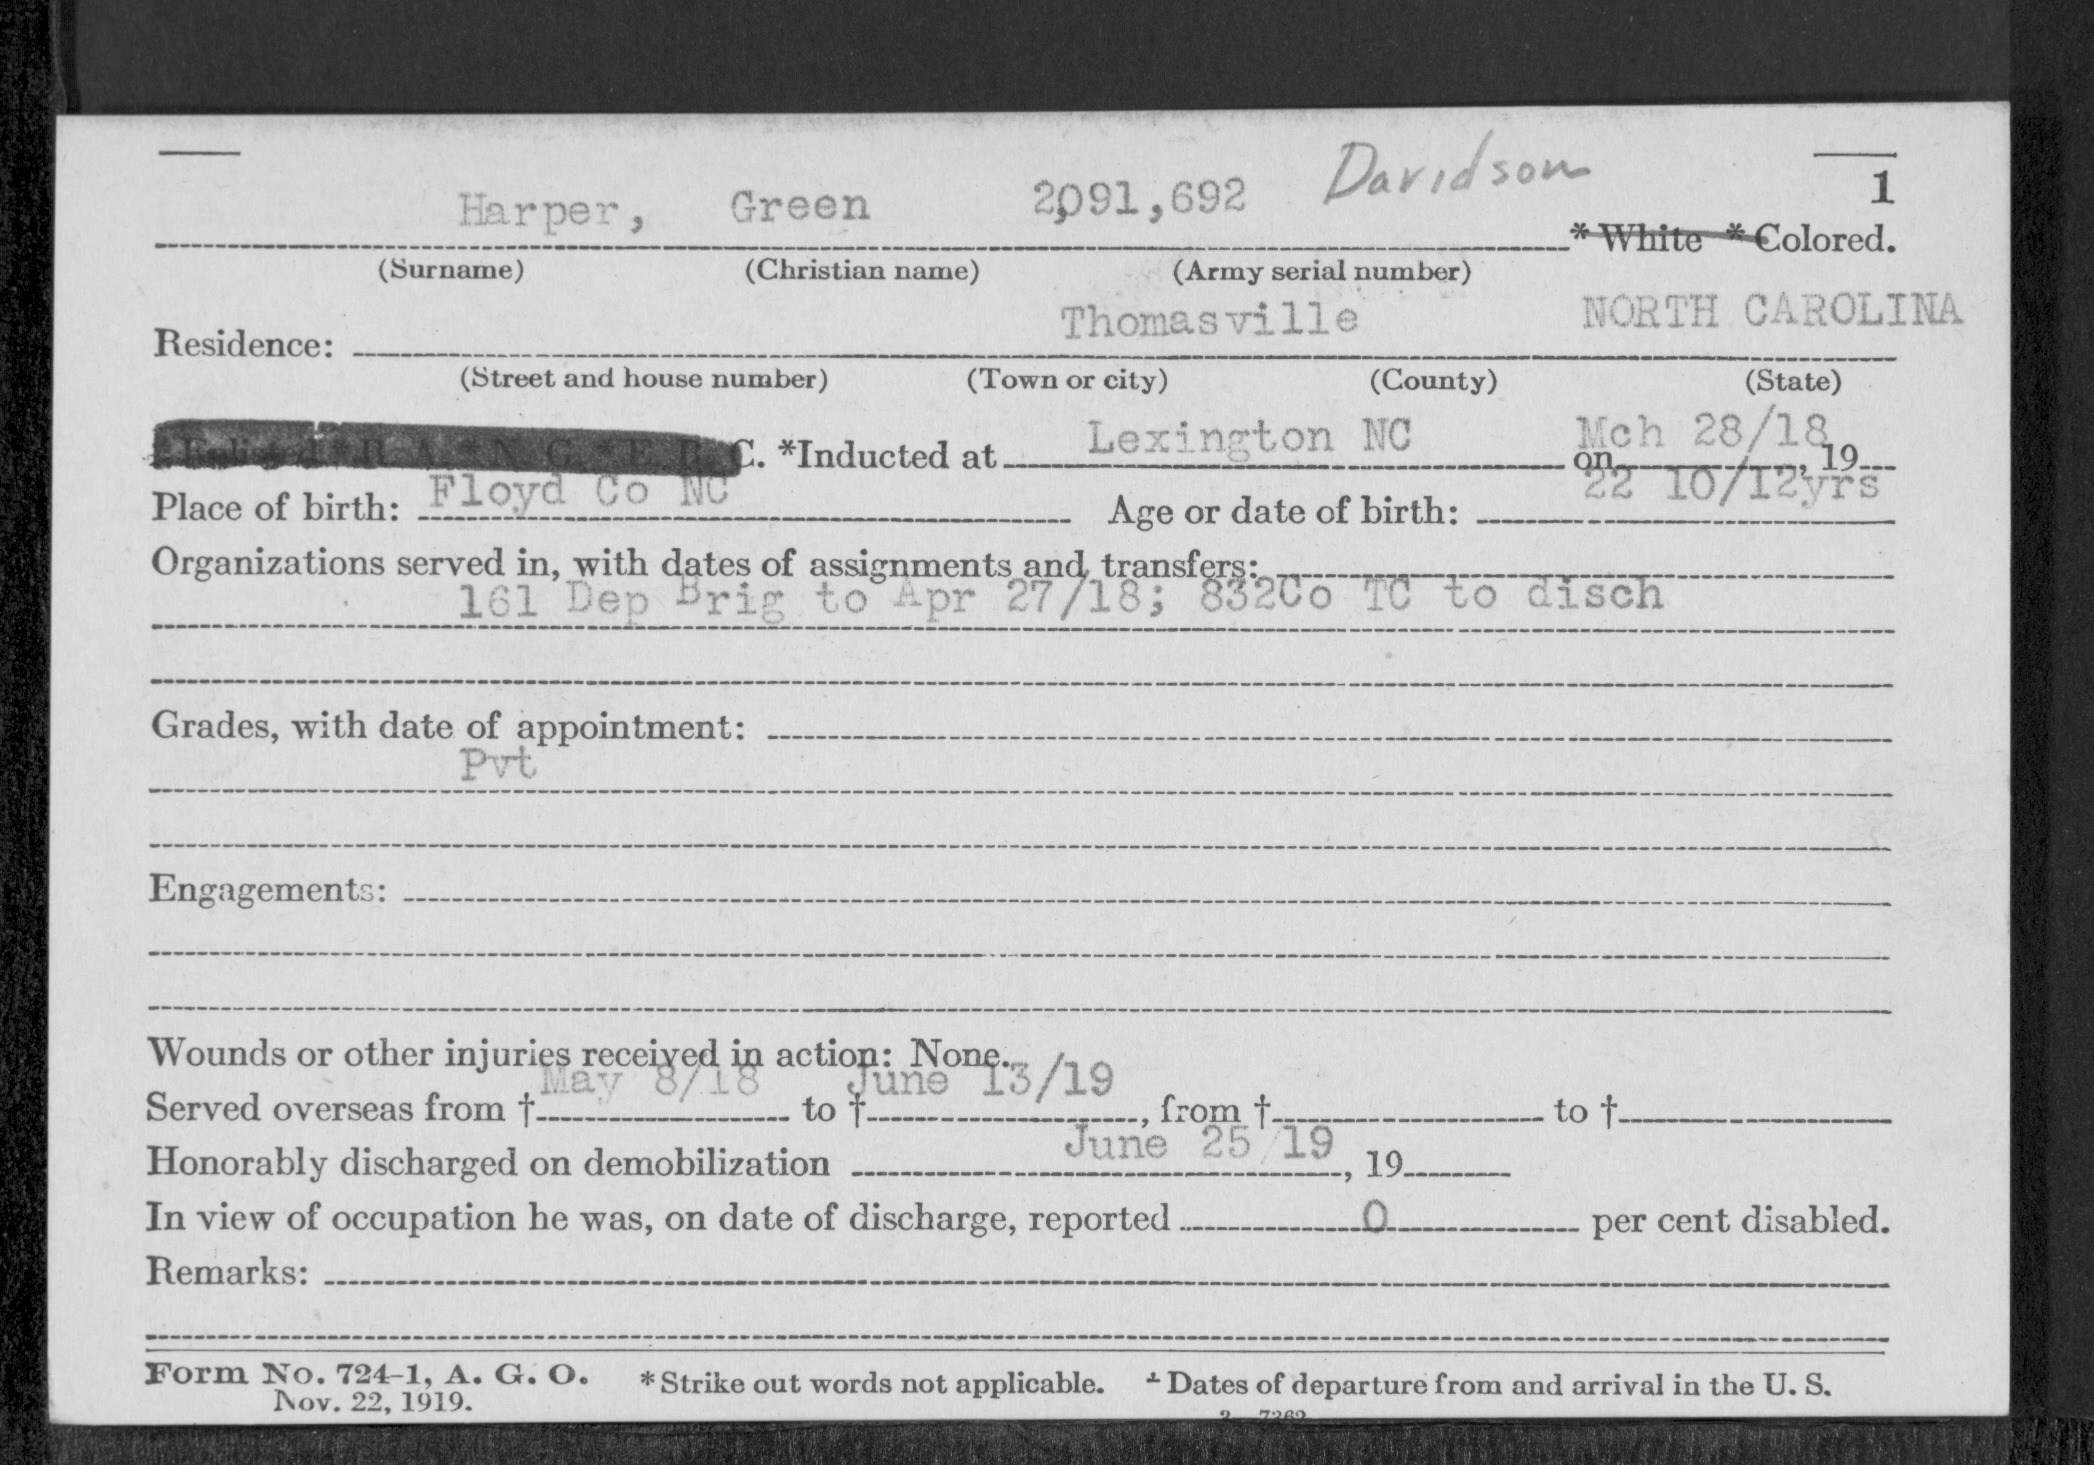 Harper, Green 2,091,692 Davidson 1
* White * Colored.
(Surname) (Christian name) (Army serial number)
Residence: Thomasville NORTH CAROLINA
(Street and house number) (Town or city) (County) (State)
*Enlisted *R. A. *N. G. *E. R. C. *Inducted at Lexington NC on Mch 28/18, 19
Place of birth: Floyd Co NC Age or date of birth: 22 10/12yrs
Organizations served in, with dates of assignments and transfers:
161 Dep Brig to Apr 27/18; 832Co TC to disch
Grades, with date of appointment:
Pvt
Engagements:
Wounds or other injuries received in action: None.
Served overseas from † May 8/18 to † June 13/19, from † to †
Honorably discharged on demobilization June 25/19, 19
In view of occupation he was, on date of discharge, reported 0 per cent disabled.
Remarks:
Form No. 724-1, A. G. O. * Strike out words not applicable. † Dates of departure from and arrival in the U. S.
Nov. 22, 1919.